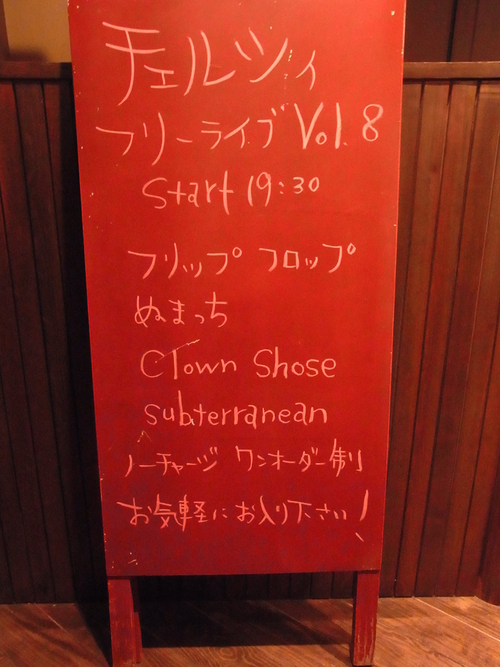 チェルツィ
フリーライブ Vol. 8
Start 19:30
フリップ フロップ
ぬまっち
Clown Shose
subterranean
ノーチャージ ワンオーダー制
お気軽にお入り下さい!